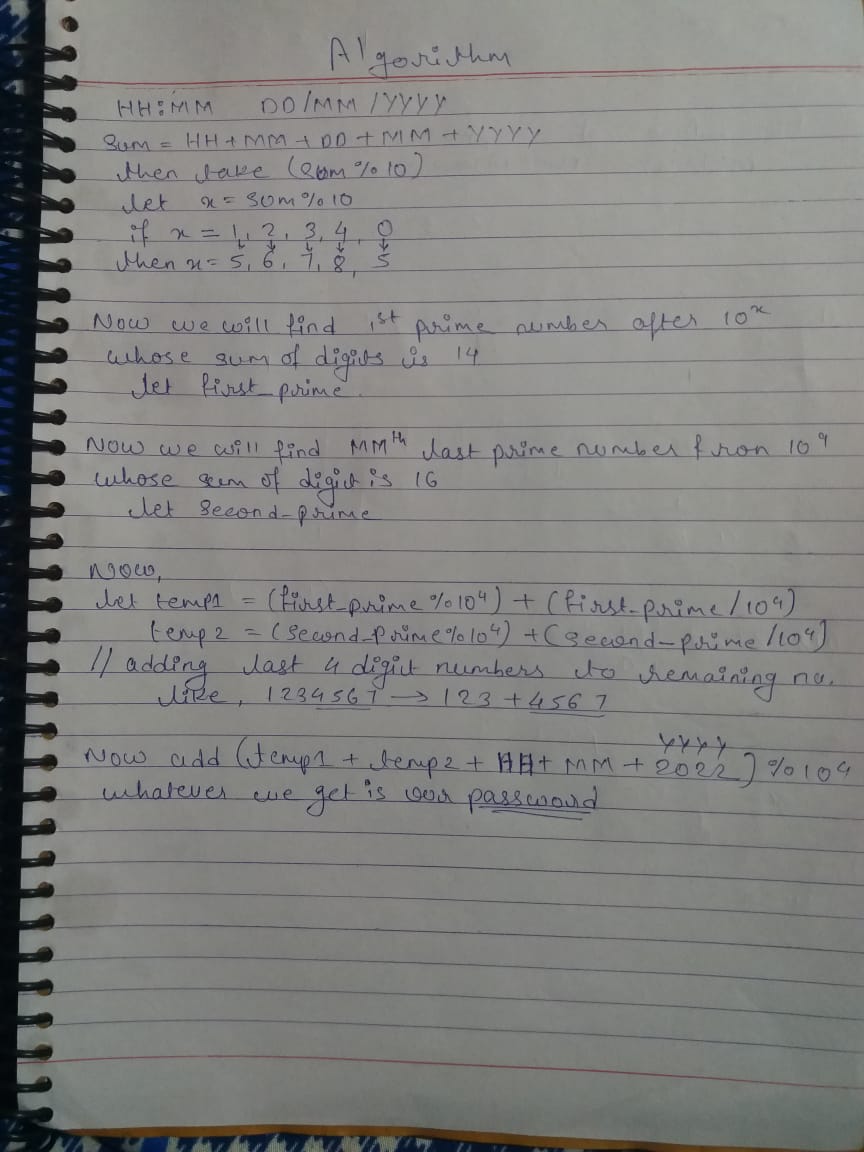 Algorithm
HH:MM DD/MM/YYYY
Sum = HH+MM+DD+MM+YYYY
then take (Sum%10)
let x = sum%10
if x = 1, 2, 3, 4, 0
↓ ↓ ↓ ↓ ↓
then x = 5, 6, 7, 8, 5
Now we will find 1st prime number after 10^x
whose sum of digits is 14
let first_prime.
Now we will find MM^th last prime number from 10^9
whose sum of digit is 16
let second-prime
Now,
let temp1 = (first_prime%10^4) + (first-prime/10^4)
temp2 = (second-prime%10^4) + (second-prime/10^4)
// adding last 4 digit numbers to remaining no.
like, 1234567 → 123 + 4567
YYYY
Now add (temp1 + temp2 + HH + MM + 2022)%10^4
whatever we get is our password